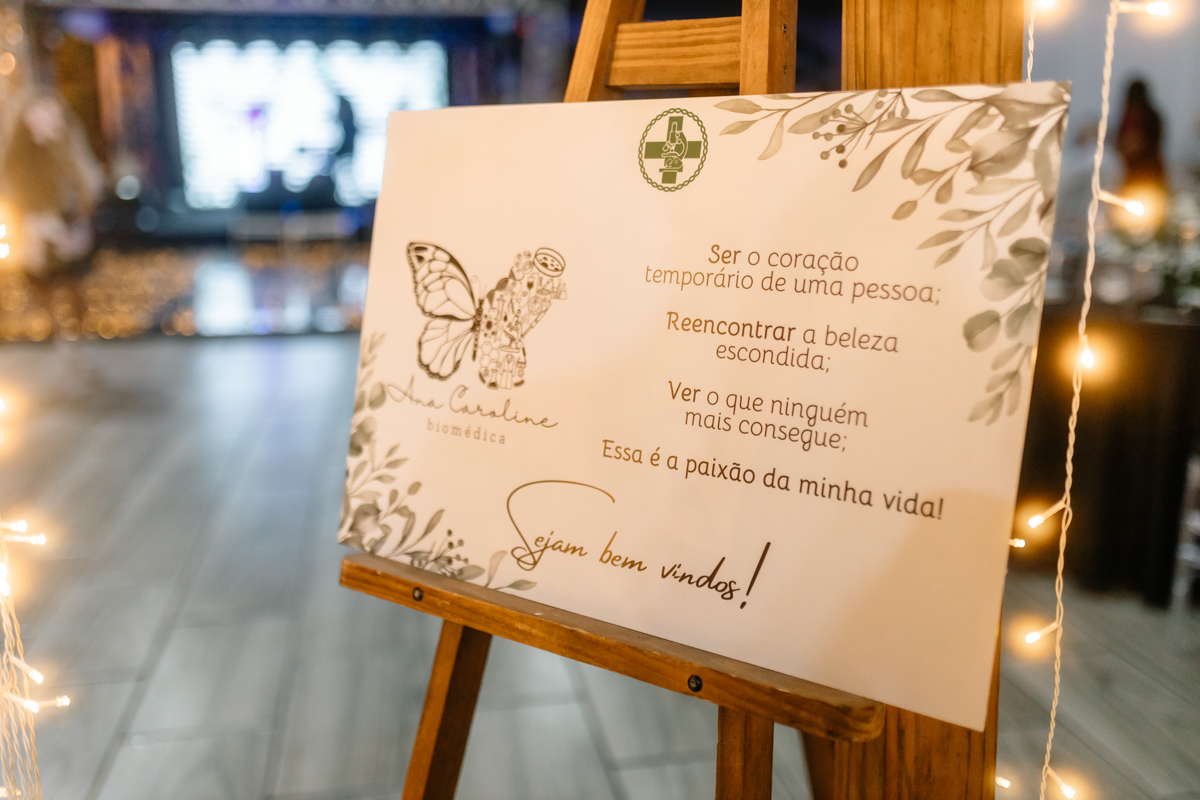 Ana Caroline
biomédica
Ser o coração
temporário de uma pessoa;
Reencontrar a beleza
escondida;
Ver o que ninguém
mais consegue;
Essa é a paixão da minha vida!
Sejam bem vindos!